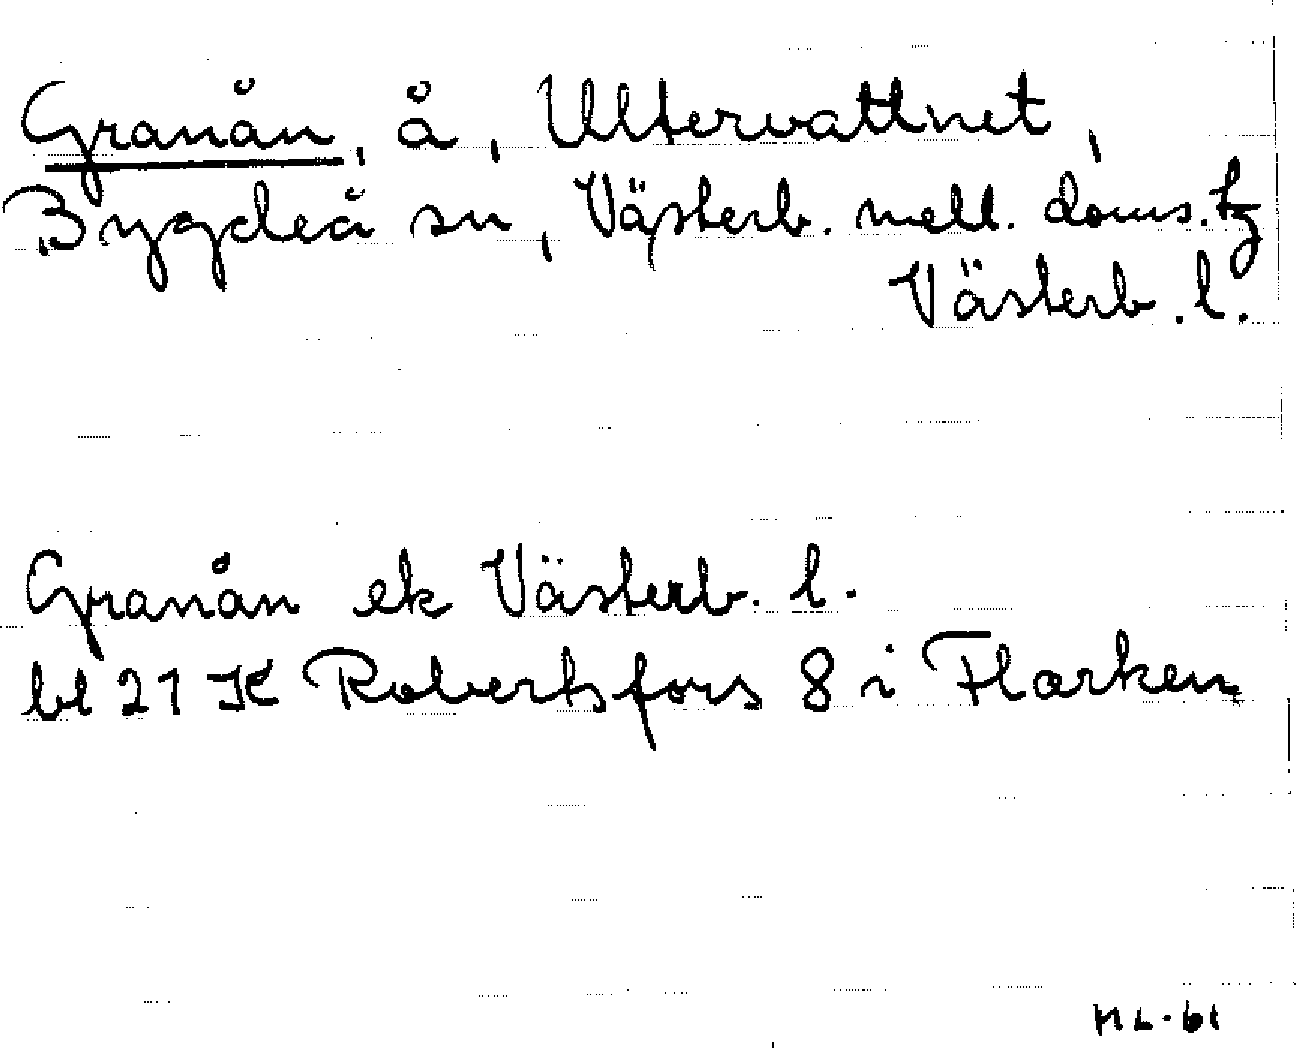 Granån, å, Ultervattnet,
Bygdeå sn, Västerb. mell. doms. tg
Västerb. l.
Granån ek Västerb. l.
bl 21 K Robertsfors 8 i Flarken
HL-61